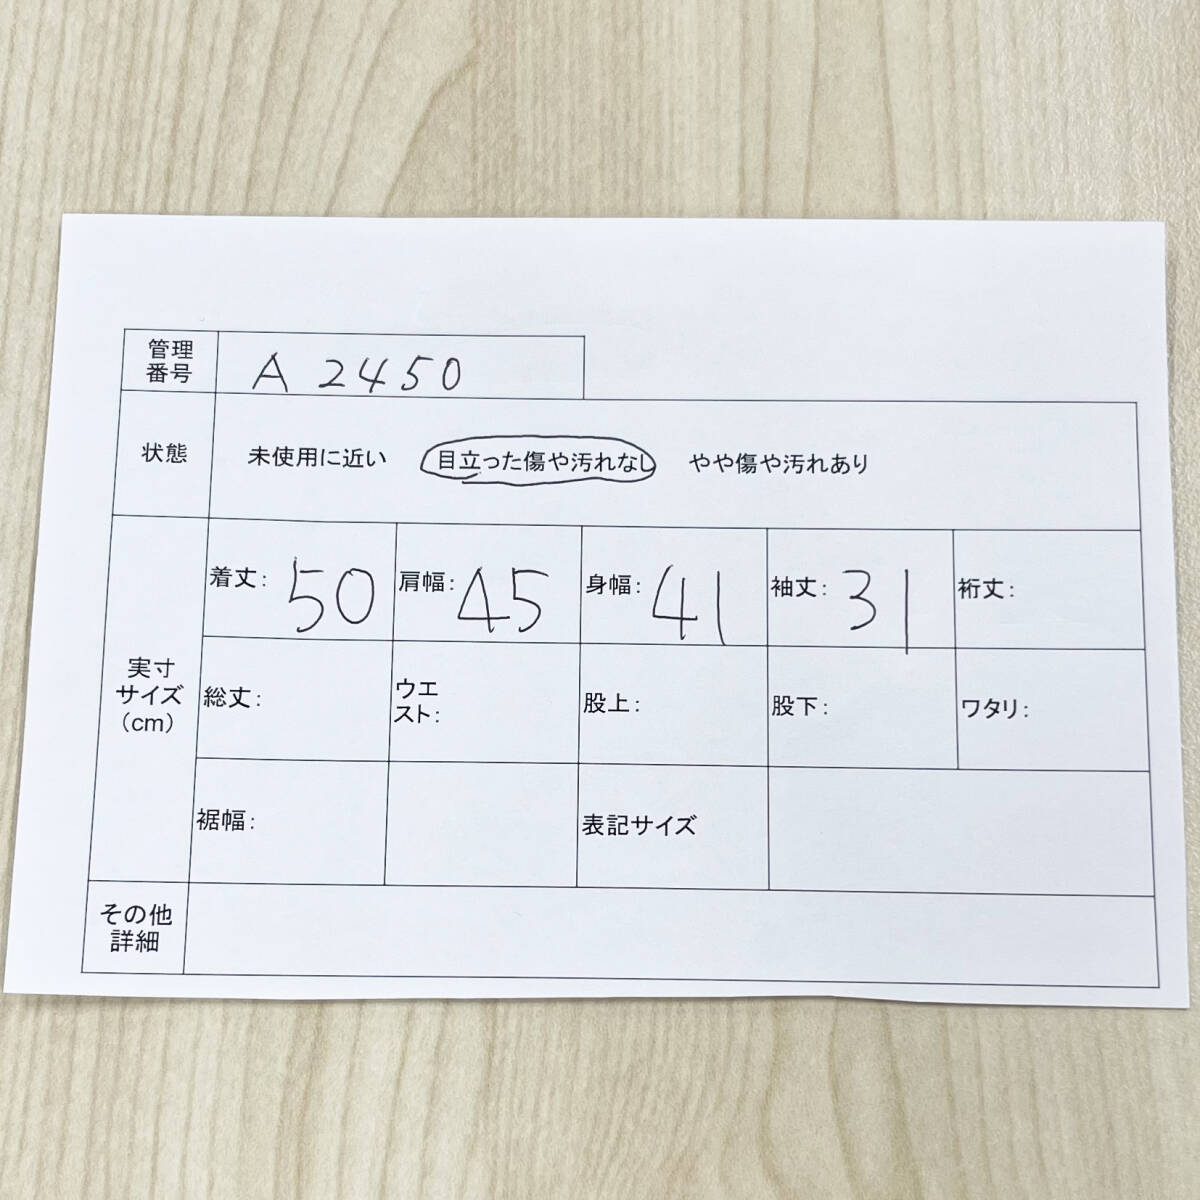 管理
番号
A 2450
状態
未使用に近い 目立った傷や汚れなし やや傷や汚れあり
実寸
サイズ
(cm)
着丈: 50 肩幅: 45 身幅: 41 袖丈: 31 裄丈:
総丈:
ウエ
スト:
股上:
股下:
ワタリ:
裾幅:
表記サイズ
その他
詳細